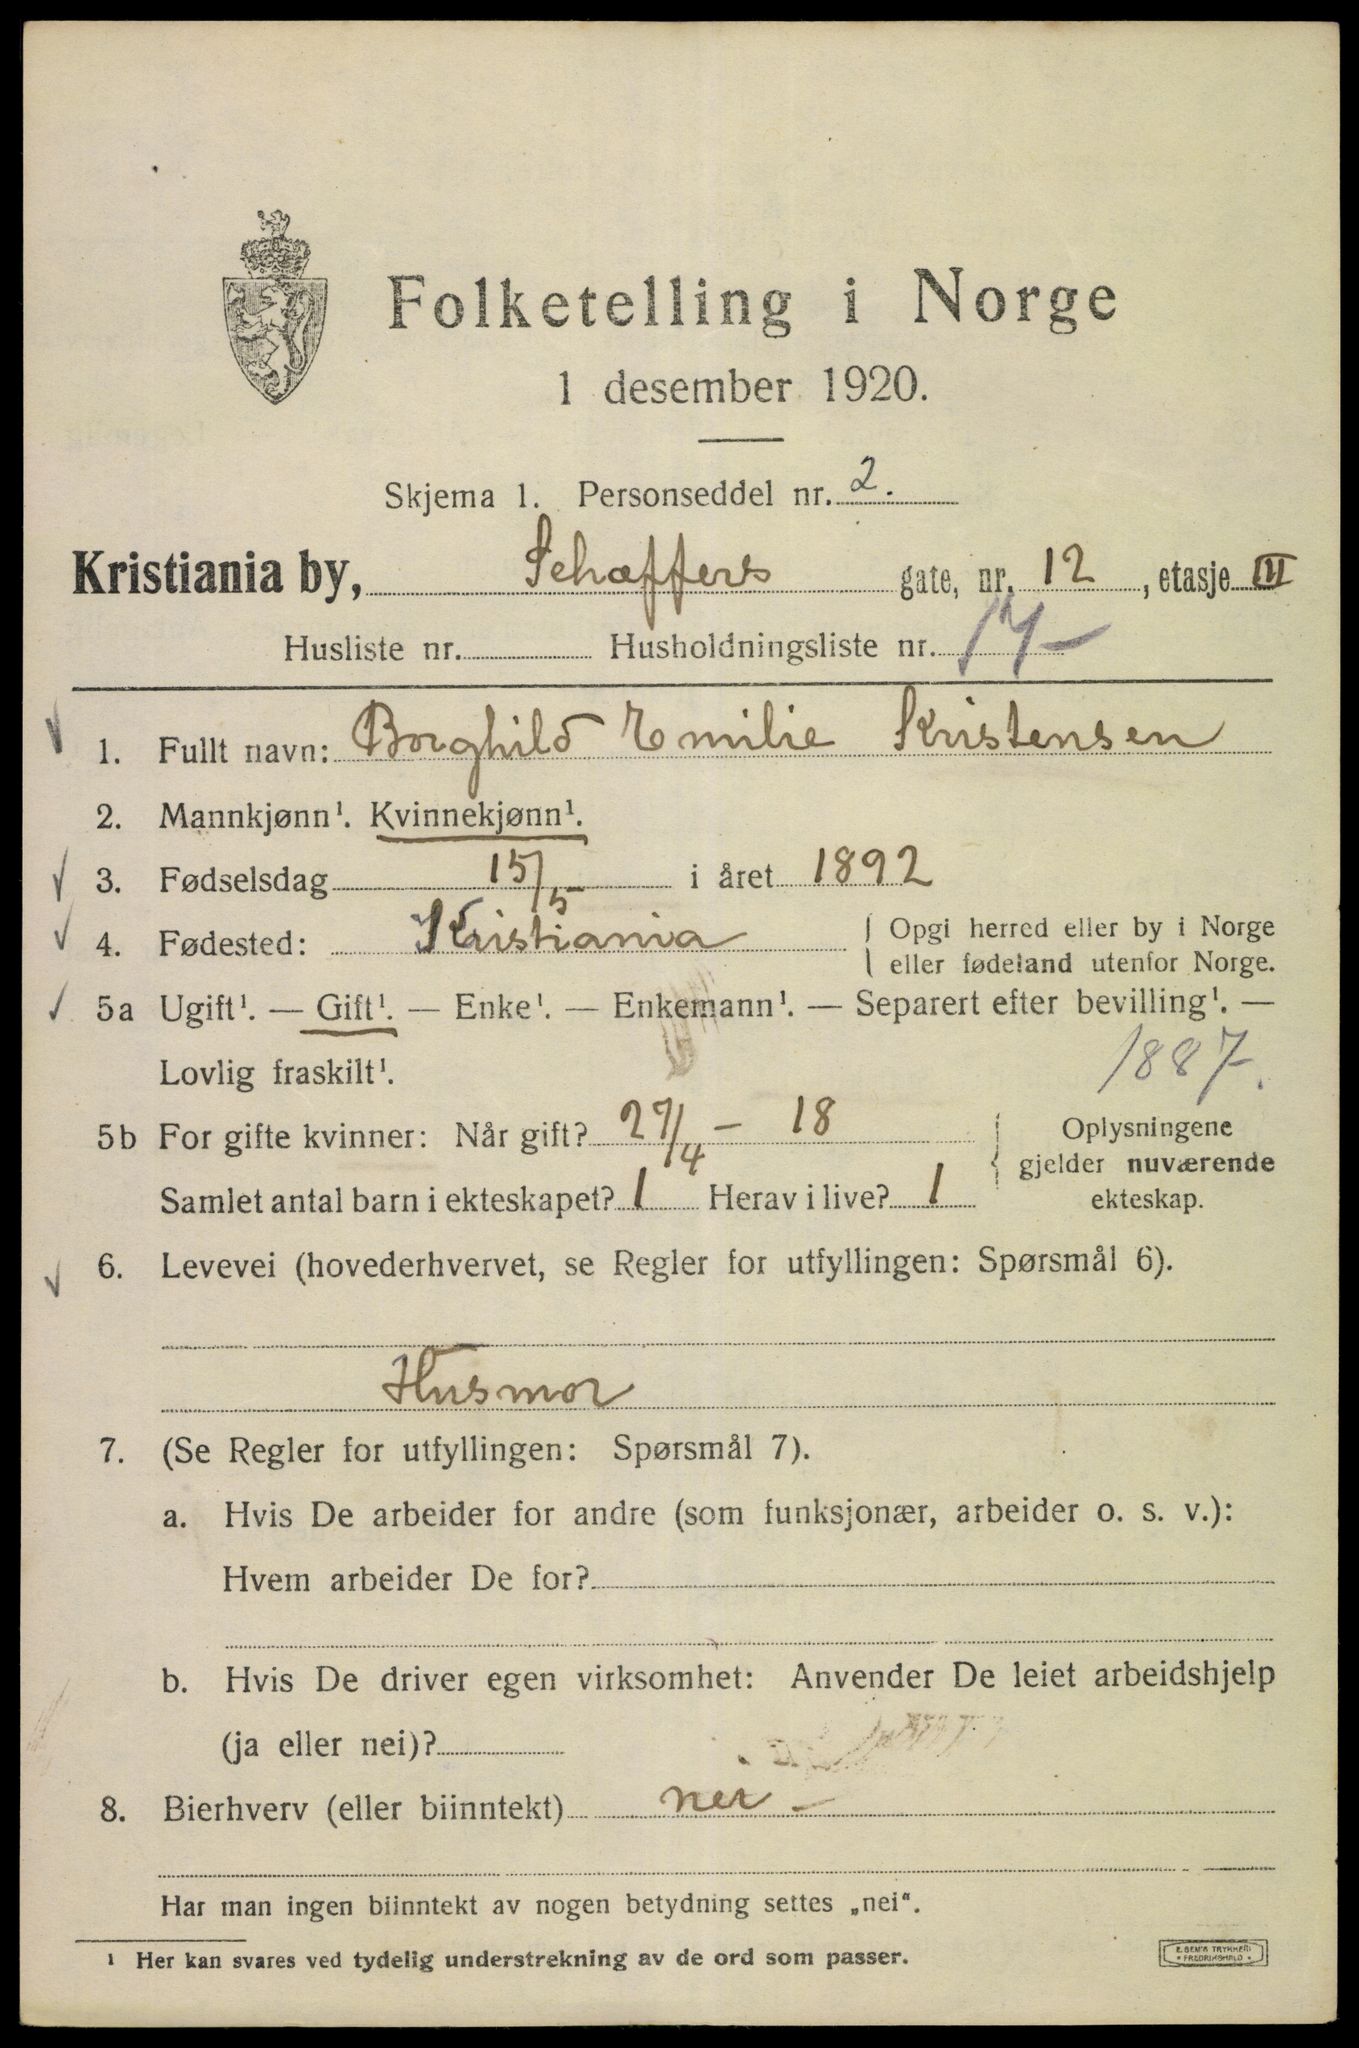 Folketelling i Norge
1 desember 1920.
Skjema 1. Personseddel nr. 2.
Kristiania by, Schæffers gate, nr. 12, etasje III
Husliste nr. Husholdningsliste nr. 14-
1. Fullt navn: Borghild Emilie Kristensen
2. Mannkjønn¹. Kvinnekjønn¹.
3. Fødselsdag 15/5 i året 1892
4. Fødested: Kristiania { Opgi herred eller by i Norge
eller fødeland utenfor Norge.
5a Ugift¹. — Gift¹. — Enke¹. — Enkemann¹. — Separert efter bevilling¹. —
Lovlig fraskilt¹.
1887.
5b For gifte kvinner: Når gift? 27/4 - 18
Samlet antal barn i ekteskapet? 1 Herav i live? 1
{ Oplysningene
gjelder nuværende
ekteskap.
6. Levevei (hovederhvervet, se Regler for utfyllingen: Spørsmål 6).
Husmor
7. (Se Regler for utfyllingen: Spørsmål 7).
a. Hvis De arbeider for andre (som funksjonær, arbeider o. s. v.):
Hvem arbeider De for?
b. Hvis De driver egen virksomhet: Anvender De leiet arbeidshjelp
(ja eller nei)?
8. Bierhverv (eller biinntekt) nei -
Har man ingen biinntekt av nogen betydning settes „nei“.
¹ Her kan svares ved tydelig understrekning av de ord som passer.
E. SEM'S TRYKKERI
• FREDRIKSHALD •